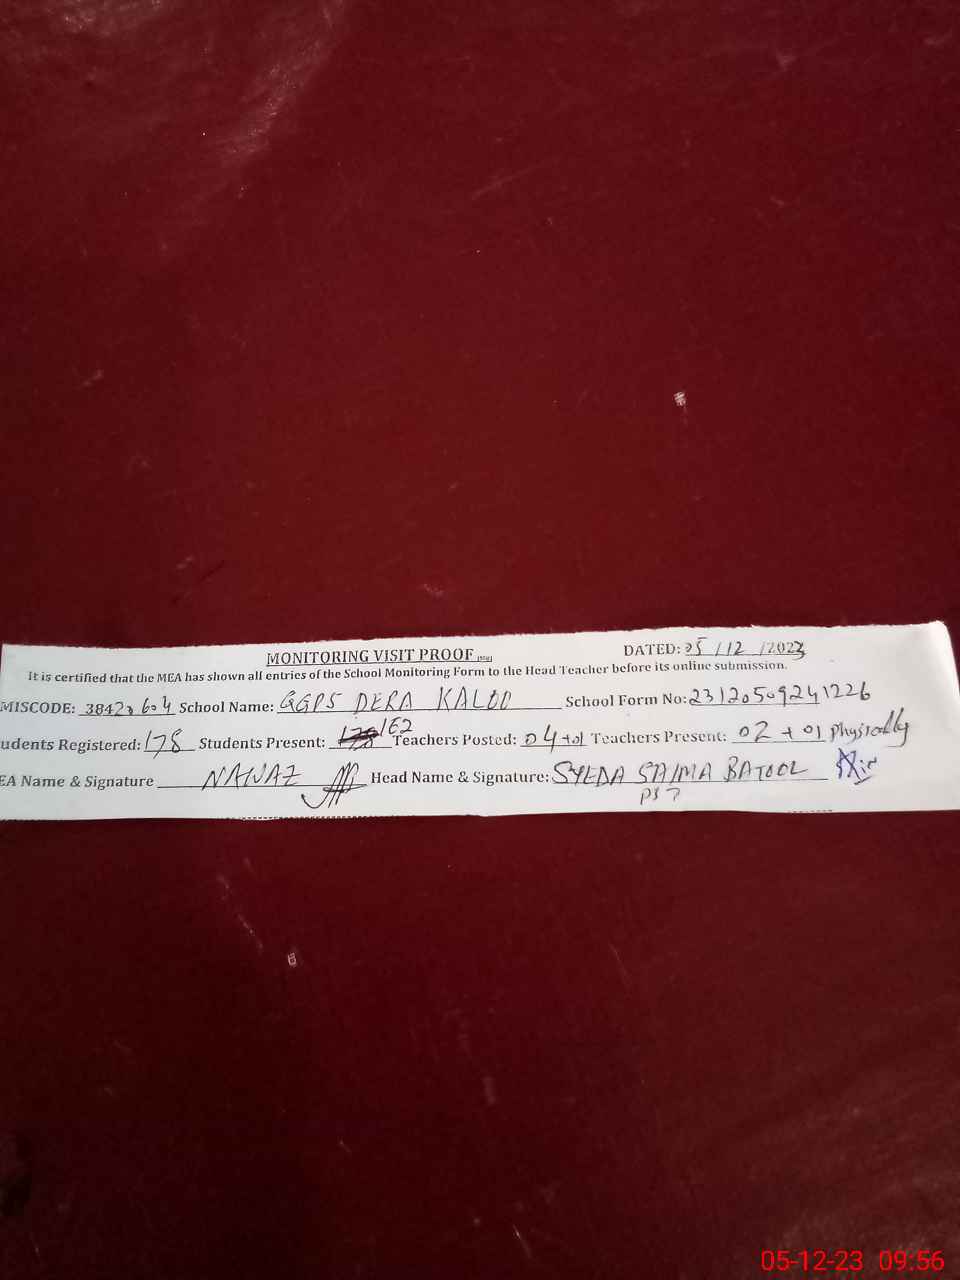 MONITORING VISIT PROOF DATED: 05/12/2023
It is certified that the MEA has shown all entries of the School Monitoring Form to the Head Teacher before its online submission.
MISCODE: 38420604 School Name: GGPS DERA KALOO School Form No: 23120509241226
udents Registered: 178 Students Present: 162 Teachers Posted: 04+01 Teachers Present: 02 + 01 Physically
EA Name & Signature NAWAZ Head Name & Signature: SYEDA SAIMA BATOOL
05-12-23 09:56